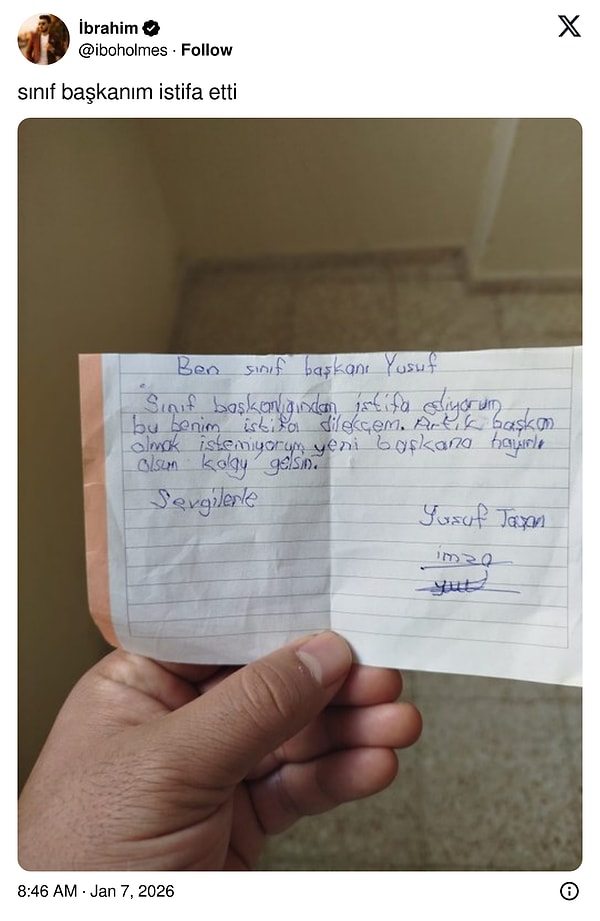 İbrahim
@iboholmes · Follow
sınıf başkanım istifa etti
Ben sınıf başkanı Yusuf
Sınıf başkanlığından istifa ediyorum
bu benim istifa dilekçem. Artık başkan
olmak istemiyorum yeni başkana hayırlı
olsun kolay gelsin.
Sevgilerle
Yusuf
imza
8:46 AM · Jan 7, 2026